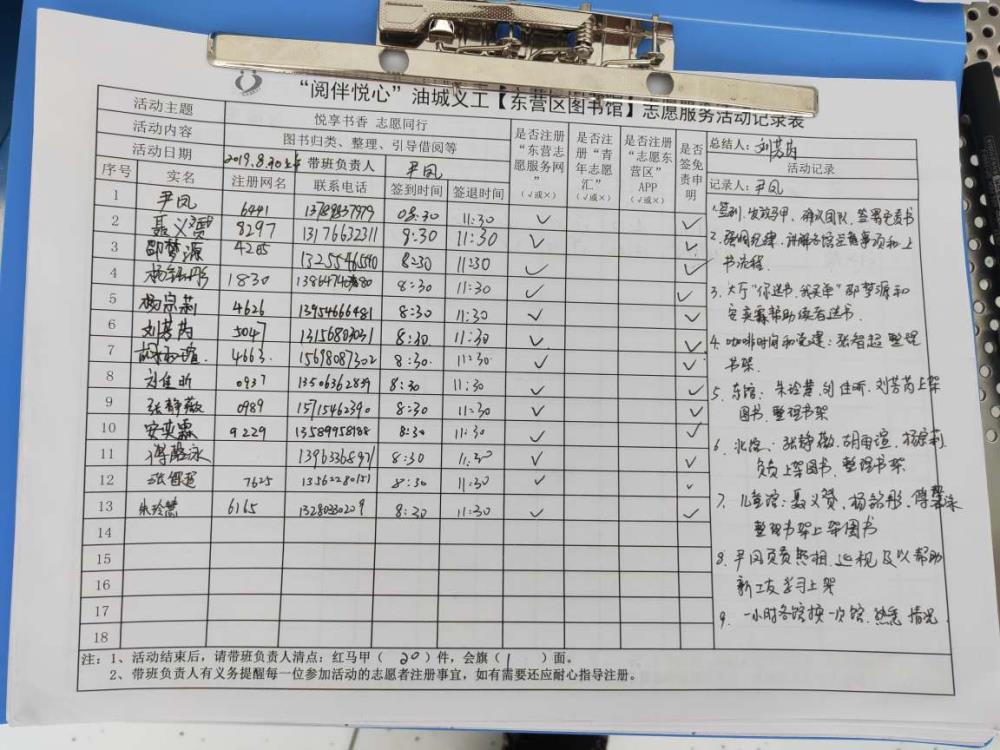 “阅伴悦心”油城义工【东营区图书馆】志愿服务活动记录表
活动主题 悦享书香 志愿同行
活动内容 图书归类、整理、引导借阅等
活动日期 2019.8.20上午 带班负责人 尹凤
序号 实名 注册网名 联系电话 签到时间 签退时间 是否注册“东营志愿服务网”（√或×） 是否注册“青年志愿汇”（√或×） 是否注册“志愿东营区”APP（√或×） 是否签免责申明
1 尹凤 6441 13789837979 08:30 11:30 ✓
2 聂义贤 8297 13176632311 8:30 11:30 ✓ ✓
3 邵梦源 4285 13255465540 8:30 11:30 ✓ ✓
4 1830 8:30 11:30 ✓ ✓
5 杨宗莉 4626 13954666481 8:30 11:30 ✓ ✓
6 刘芳芮 5047 13156803031 8:30 11:30 ✓ ✓
7 胡雨谊 4663 15698087302 8:30 11:30 ✓ ✓
8 刘佳昕 0937 13506362839 8:30 11:30 ✓ ✓
9 张静薇 0989 15715462390 8:30 11:30 ✓ ✓
10 安奕霖 9229 13589958988 8:30 11:30 ✓ ✓
11 8:30 11:30 ✓ ✓
12 张智超 7625 13562280151 8:30 11:30 ✓ ✓
13 朱玲慧 6165 13280330209 8:30 11:30 ✓ ✓
14
15
16
17
18
总结人：刘芳芮
活动记录
记录人：尹凤
1.签到、发放马甲、确认团队、签署免责书
2.强调纪律、讲解各馆注意事项和上
书流程.
3.大厅“你选书、我买单”邵梦源和
安奕霖帮助读者选书.
4.咖啡时间和党建：张智超 整理
书架.
5.东馆：朱玲慧、刘佳昕、刘芳芮上架
图书、整理书架
6.北馆：张静薇、胡雨谊、杨宗莉
负责上架图书、整理书架
7.儿童馆：聂义贤、
整理书架上架图书
8.尹凤负责照相、巡视及以帮助
新工友学习上架
9.一小时各馆换一次馆、熟悉情况
注：1、活动结束后，请带班负责人清点：红马甲（ 20 ）件，会旗（ 1 ）面。
2、带班负责人有义务提醒每一位参加活动的志愿者注册事宜，如有需要还应耐心指导注册。